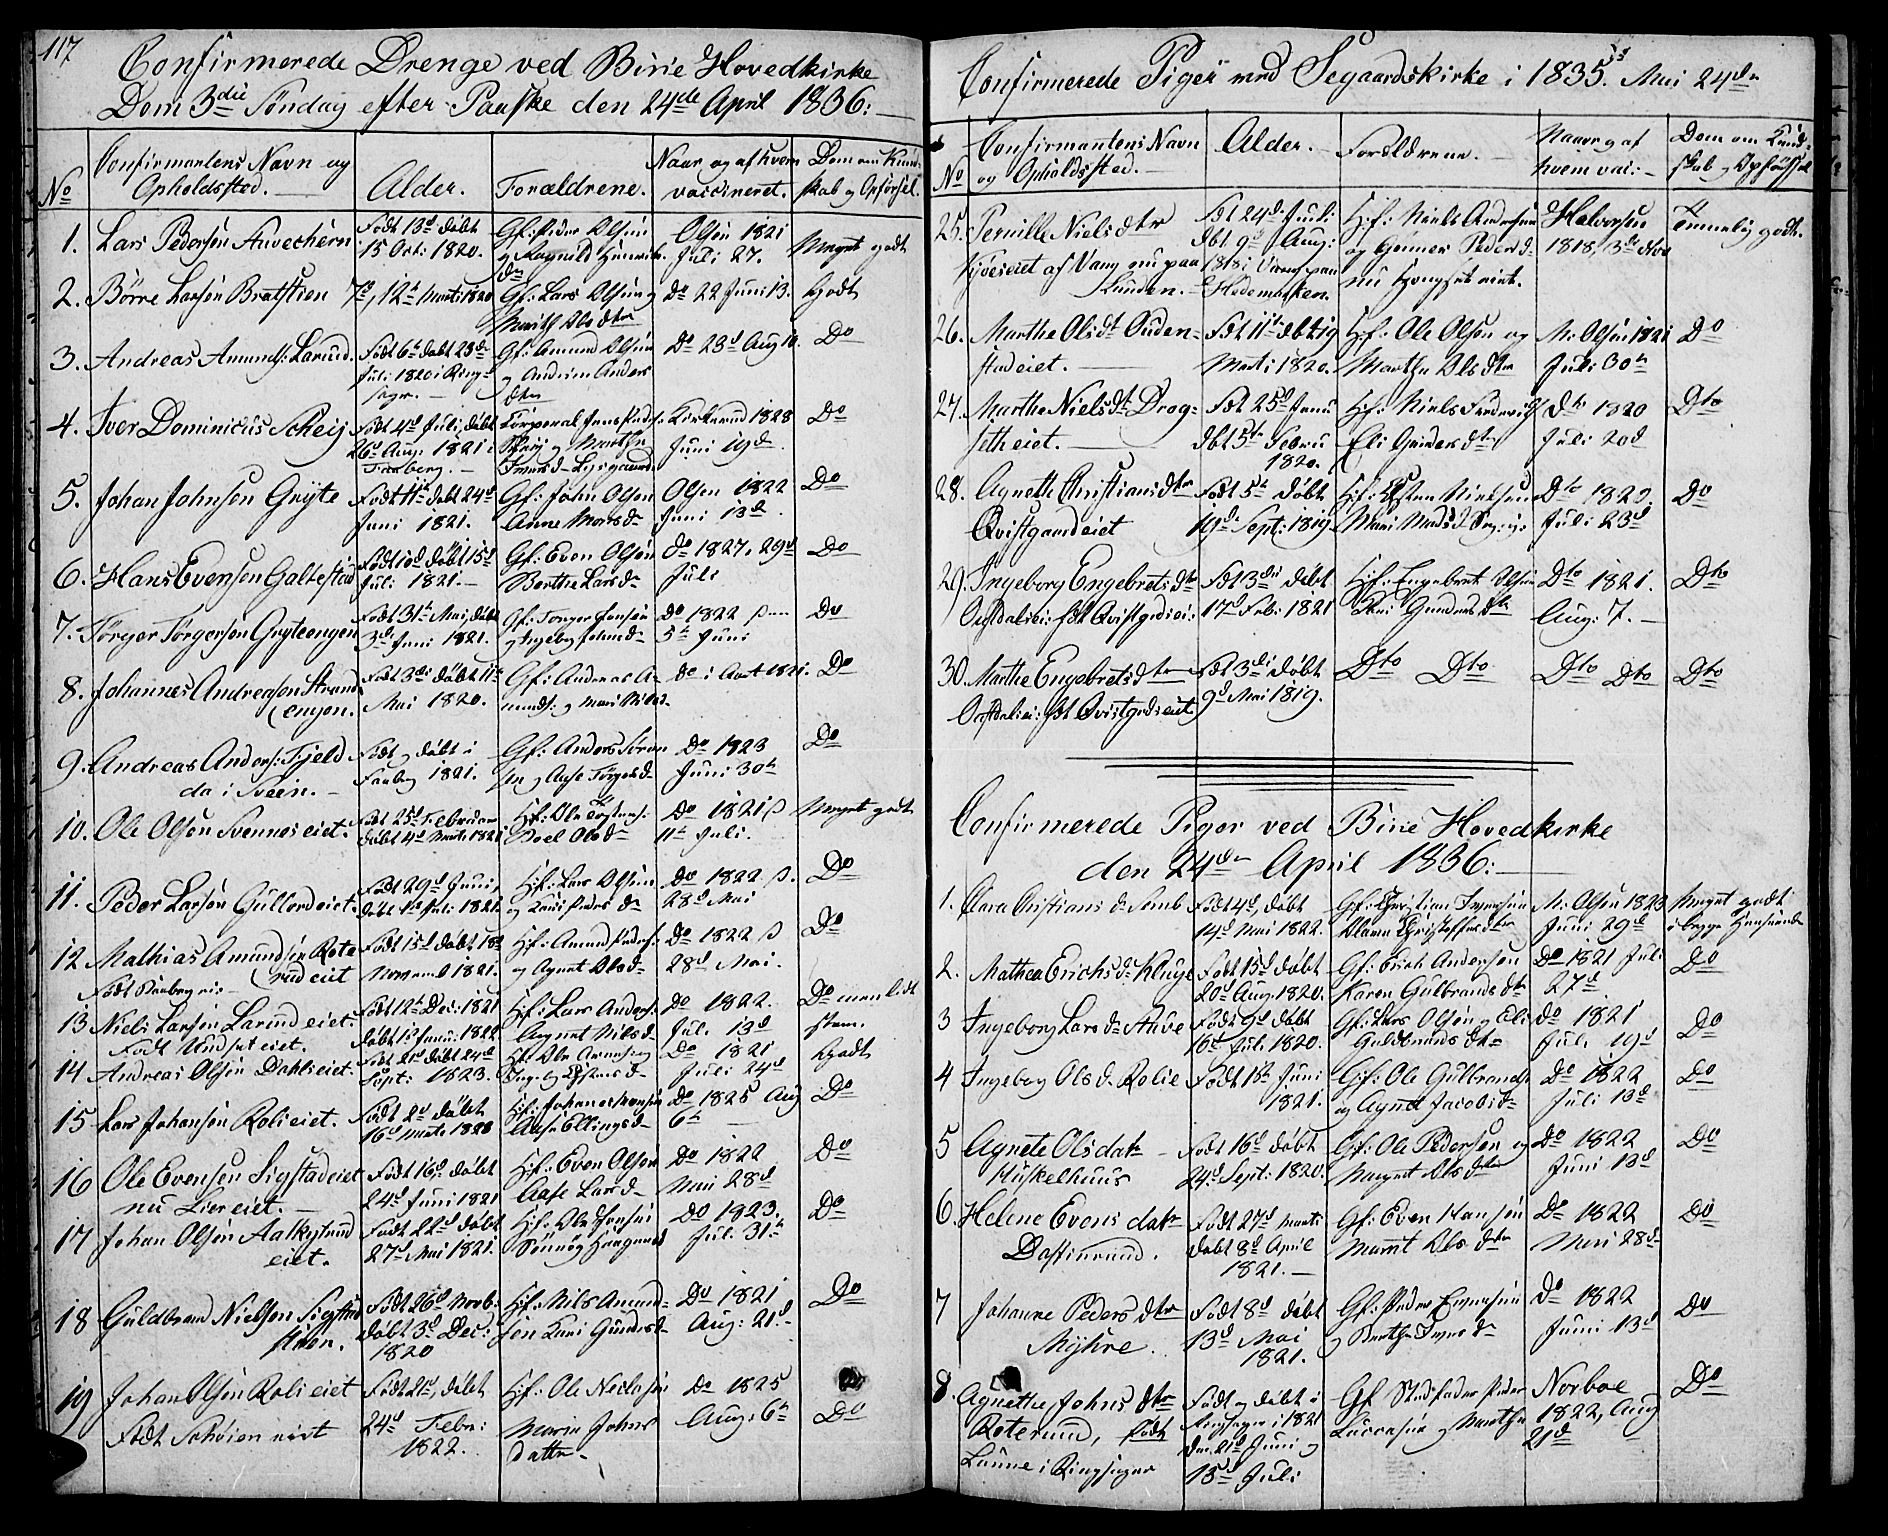 117
Confirmerede Drenge ved Birie Hovedkirke
Dom 3die Søndag efter Paaske den 24de April 1836.
No
Confirmantens Navn og
Opholdssted.
Alder.
Forældrene.
Naar og af hvem
vaccineret.
Dom om Kund-
skab og Opførsel.
1. Lars Pedersen
Født 13d døbt
15 Oct: 1820.
Gf: Peder Olsen
og Ragnild Henrik
dtr
Olsen 1821
Juli 27.
Meget godt
2. Börre Larsen Bratstien
7d, 12t Marti 1820
Gf: Lars Olsen og
Marith Olsdtr
Do 22 Juni 13.
Godt
3. Andreas Amunds: Larud.
Født 6t døbt 23de
Juli 1820 i Ring-
sager.
Gf: Amund Olsen
og Anders
dtr
Do 23d Aug 10.
Do
4. Iver Dominicus Scheij
Født 4d Juli, døbt
26d Aug: 1821 i
Faaberg.
Corporal Jens
og Marthe
1828
Juni 19d
Do
5. Johan Johnsen Gryte
Født 11t døbt 24d
Juni 1821.
Gf: John Olsen
Anne Morsd
Olsen 1822
Juni 13d
Do
6. Hans Evensen Galtestad
Født 10d døbt 15d
Juli 1821.
Gf: Even Olsen
Berthe Larsd
do 1827, 29d
Juli
Do
7. Törger Törgersen Gryteengen
Født 31t Mai, døbt
3d Juni 1821.
Gf: Torger Jonsen
og Ingeborg Johnsd
Do 1822
5t Juni
Do
8. Johannes Andreasen Strand
engen.
Født 3die døbt 11t
Mai 1820.
Gf: Andreas A-
munds: og Mari Nilsd
do i 1821.
Do
9. Andreas Anders: Fjeld
da i Sveen.
Født og døbt i
Faaberg 1821.
Gf: Anders Sören
sen og Aase Törgersd
Do 1823
Juni 30t
Do
10. Ole Olsen Svennes eiet.
Født 25d Februar
døbt 4d Marti 1821
Hf: Ole
Boel Olsd
Do 1821
11t Juli.
Meget godt
11. Peder Larsen Gullord eiet.
Født 29d Juni,
døbt 1d Juli 1821.
Hf: Lars Olsen
og Kari Pedersd
Do 1822
28d Mai
Do
12 Mathias Amundsen Rote
rud eiet
Født eie
Født 15d døbt 18d
Novemb 1821.
Hf: Amund Peders:
og Agnet Olsd
Do 1822
28d Mai.
Do
13 Niels Larsen Larud eiet.
Født eiet.
Født 12t Dec: 1821
døbt 13 Janu: 1822
Hf: Lars Anders:
Agnet Nilsd
Do 1822.
Jul. 13d
Do men lidt
stam.
14 Andreas Olsen Dahls eiet.
Født 21d døbt 24d
Sept: 1823.
Hf: Ole
Do 1821
Juli 24d
Godt
15 Lars Johansen Roli eiet.
Født 2d døbt
16d Marti 1820
Hf: Johannes
Aase Ellingsd
Do 1825 Aug
6t
Do
16 Ole Evensen Sigstad eiet
nu Lier eiet.
Født 16d døbt
24d Juni 1821
Hf: Even Olsen
Aase Larsd
Do 1822
Mai 28d
Do
17 Johan Olsen Aalkystrud
eiet.
Født 22d døbt
27d Mai 1821.
Hf: Ole Jensen
Sönnög
Do 1823.
Jul. 31t
Do
18 Guldbrand Nielsen Sigstad
steen.
Født 26d Novb:
Døbt 3d Dec:
1820
Hf: Nils Amund-
sen Kari Gundersd
Do 1821
Aug: 21d
Do
19 Johan Olsen Roli eiet
Født Schöien eiet
Født 21d, døbt
24d Febr:
1822.
Hf: Ole Neclasen
Marie Johns
datter
Do 1825
Aug: 6t
Do
Confirmerede Piger ved Segaardskirke i 1835. Mai 24de
No
Confirmantens Navn
og Opholdssted.
Alder.
Forældrene.
Naar og af
hvem vac:
Dom om Kund-
skab og Opførsel
25. Pernille Nielsdtr
eiet af Vang nu paa
Lunden.
Født 24d Juli
dbt 9d Aug:
1818 i Vang paa
Hedemarken.
Hf: Niels Andersen
og Gunnor Pedersd
nu eiet.
Halvorsen
1818, 13d Octob
Temmelig godt.
26. Marthe Olsdt Ouden-
stad eiet.
Født 11t dbt 19
Marti 1820.
Hf: Ole Olsen og
Marthe Olsdtr
N: Olsen 1821
Juli 30t
Do
27. Marthe Nielsdt Drog-
seth eiet.
Født 25d Janu
dbt 5t Febru
1820.
Hf: Niels Frederichs
Eli Gundersdtr
Dto 1820
Juli 20d
Dto
28. Agnethe Christiansdtr
Qvistgaard eiet
Født 5t døbt
19d Sept: 1819
Hf: Nielsen
Mari Madsd
Dto 1822.
Juli 23d
Do
29. Ingeborg Engebretsdtr
Født 3die døbt
17d Feb: 1821
Hf: Engebret Olsen
Kari Gundersdtr
Dto 1821.
Aug: 7.
Dto
30. Marthe Engebretsdtr
Født 3die døbt
9d Mai 1819.
Dto Dto
Dto Dto
Dto
Confirmerede Piger ved Birie Hovedkirke
den 24de April 1836:
1. Clara Christiansd Semb
Født 4d, døbt
14d Mai 1822.
Gf: Christian Iversen
Maren Christoffersdtr
N: Olsen 1823
Juni 29d
Meget godt
i begge Henseender
2. Mathea Erichsd Kluge
Født 15d døbt
20d Aug: 1820.
Gf: Erich Andersen
Karen Gulbrandsdtr
Do 1821 Juli
27d
Do
3 Ingeborg Larsd Stuve
Født 9d døbt
16d Juli 1820.
Gf: Lars Olsen og Eli
Guldbrandsdtr
do 1821
Juli 19d
Do
4 Ingeborg Olsd Rolie
Født 16t Juni
1821.
Gf: Ole Gulbrands
og Agnet Jacobsd
Do 1822
Juli 13d
Do
5 Agnete Olsdatr
Huskelhuus
Født 16d døbt
24d Sept: 1820.
Gf: Ole Pedersen og
Margret Olsdtr
Do 1822
Juni 13d
Do
6. Helene Evensdatr
Dastinrund.
Født 27d Marti
døbt 8d April
1821.
Gf: Even Hansen
Marit Olsdtr
Do 1822
Mai 28d
Do
7 Johanne Pedersdtr
Myhre.
Født 8d døbt
13d Mai
1821.
Gf: Peder Evensen
og Berthe Iversd
Do 1822
Juni 13d
Do
8. Agnethe Johnsdtr
Roterund, født
Lunne i Ringsager
Født og døbt i
Ringsager i 1821
den 21d Juni og
15d Juli
Gf Stedfader Peder
Larsen og Marthe
Norboe
1822, Aug
21d
Do